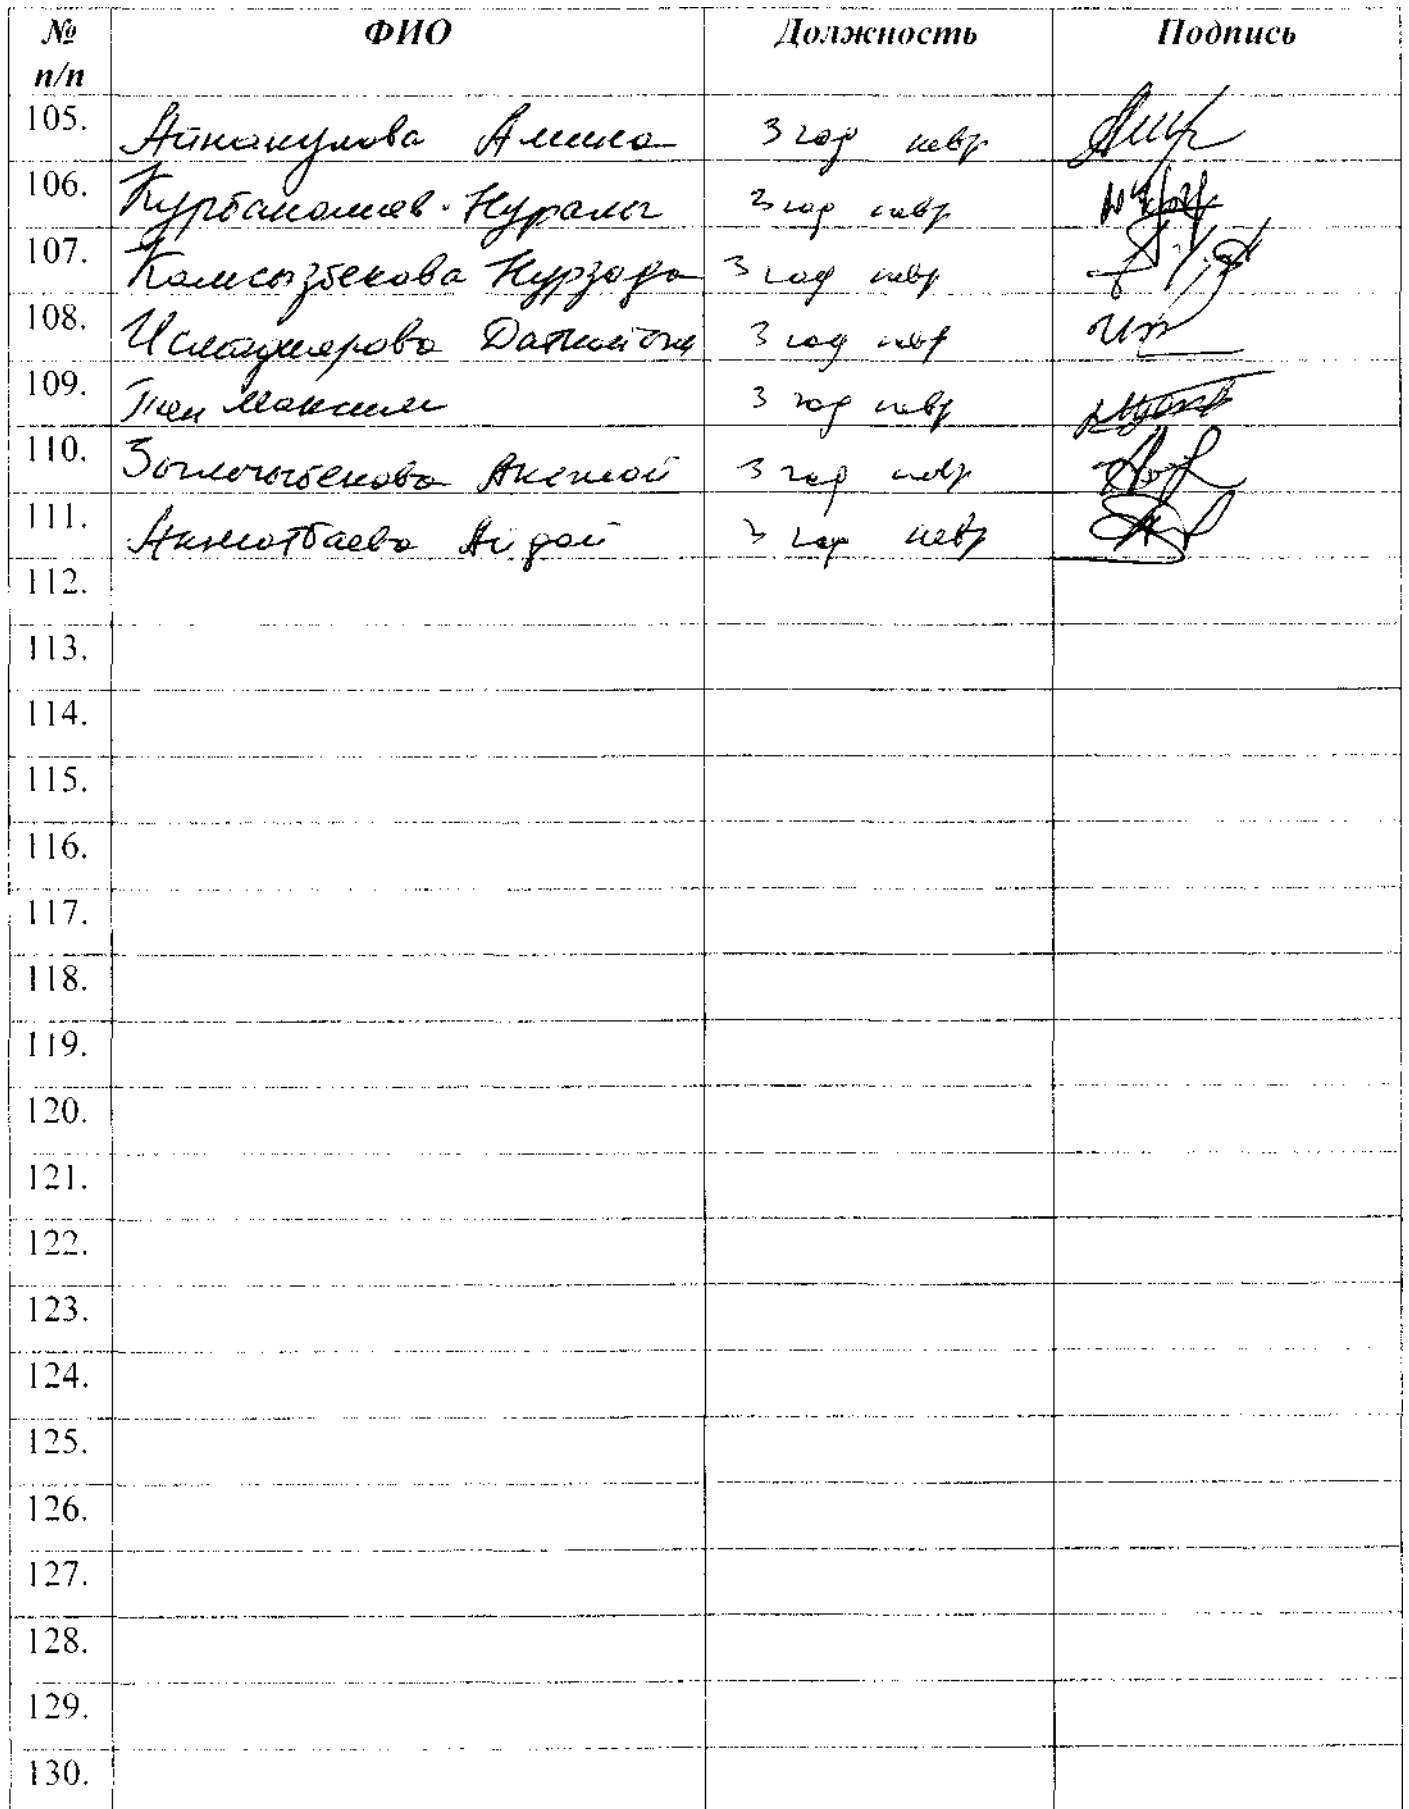 № п/п ФИО Должность Подпись
105. Айнакулова Амина 3 год невр
106. Курбаналиев Нуралы 3 год невр
107. Камсызбекова Нурзада 3 год невр
108. 3 год невр
109. Тен Максим 3 год невр
110. 3 год невр
111. Акматбаева Айдай 3 год невр
112.
113.
114.
115.
116.
117.
118.
119.
120.
121.
122.
123.
124.
125.
126.
127.
128.
129.
130.